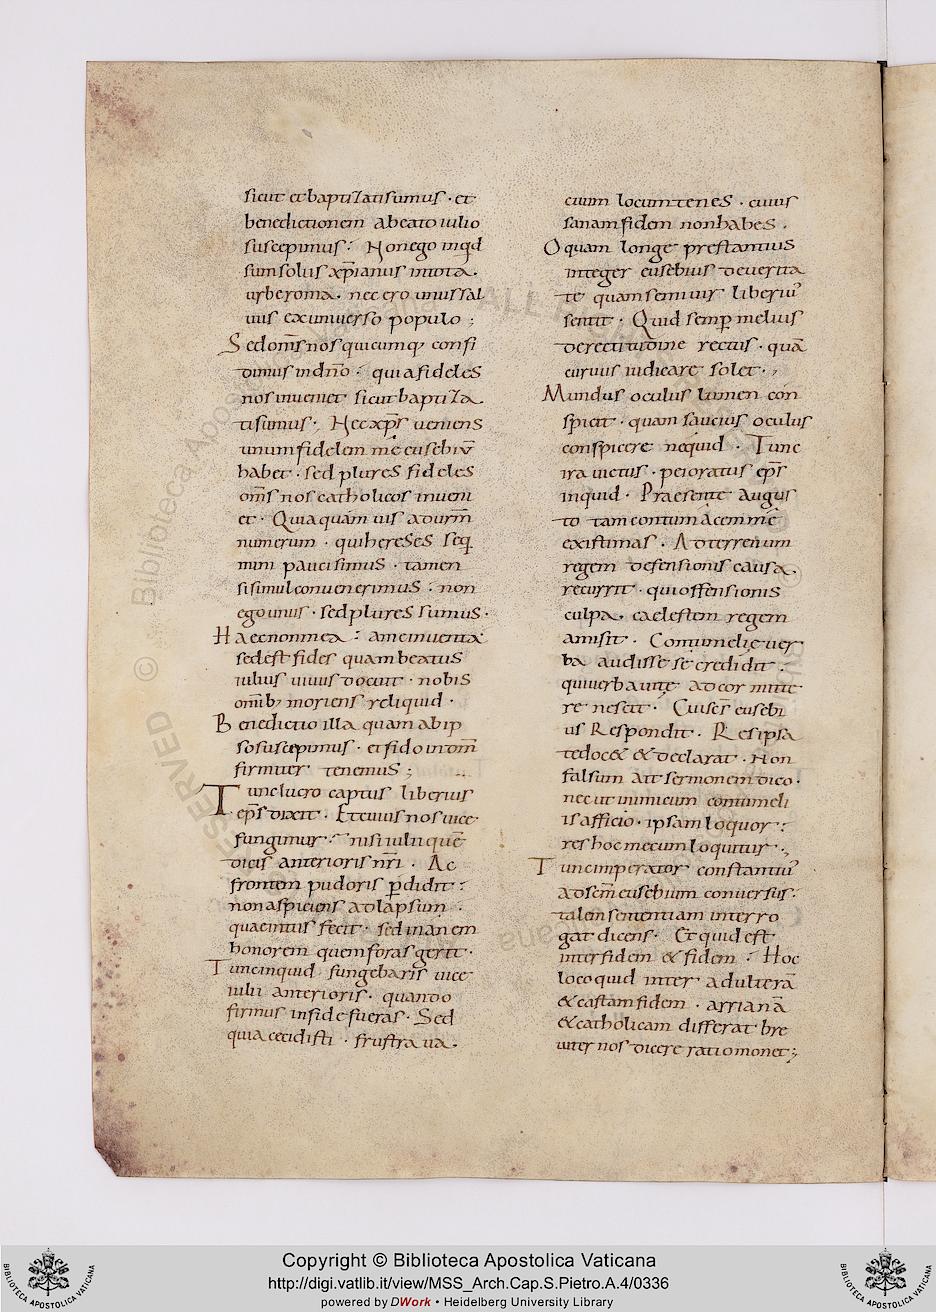 sicut et baptizati sumus · et
benedictionem a beato iulio
suscepimus : Non ego inqd
sum solus xp̄ianus in tota ·
urbe roma · nec ero unus sal
uus ex uniuerso populo ;
Sed om̄s nos quicumq; confi
dimus in dn̄o : quia fideles
nos inueniet sicut baptiza
ti sumus · Nec xp̄s ueniens
unum fidelem me eusebiū
habet · sed plures fideles
om̄s nos catholicos inueni
et · Quia quam uis ad urm̄
numerum · qui hereses seq
mini paucisimus · tamen
si simul conuenerimus : non
ego unus · sed plures sumus ·
Haec non mea : a me inuenta
sed est fides quam beatus
iulius uiuus docuit · nobis
omib; moriens reliquid ·
Benedictio illa quam ab ip
so suscepimus · et fido in om̄
firmiter tenemus ;
Tunc lucro captus liberius
ep̄s dixit · Et cuius nos uice
fungimur : nisi iulii quē
dicis anterioris nr̄i · Ac
frontem pudoris p̱didit :
non aspiciens ad lapsum ·
quae intus fecit · sed inanem
honorem quem foras gerit ·
Tunc inquid fungebaris uice
iulii anterioris · quando
firmus in fide fueras · Sed
quia cecidisti · frustra ua ·
cuum locum tenes · cuius
sanam fidem non habes ·
O quam longe prestantius
integer eusebius de uerita
te quam semiuir liberiuˀ
sentit · Quid semp̱ melius
de rectitudine rectus · quā
curuus iudicare solet · ,
Mundus oculus lumen con
spicit · quam saucius oculus
conspicere nequid · Tunc
ira uictus · peioratus ep̄s
inquid · Praesente augus
to tam contumacem me
existimas · Ad terrenum
regem defensionis causa ·
recurrit · qui offensionis
culpa · caelestem regem
amisit · Contumelię uer
ba audisse se credidit :
qui uerba uitę ad cor mitte
re nescit · Cui ser̄ eusebi
us Respondit · Res ipsa
te doc& & declarat · Non
falsum aut sermonem dico ·
nec ut inimicum contumeli
is afficio · ipsam loquor :
res hoc mecum loquitur · ,
Tunc imperator constantiuˀ
ad sc̄m eusebium conuersus ·
talem sententiam interro
gat dicens · Et quid est
inter fidem & fidem : Hoc
loco quid inter adulterā
& castam fidem · arrianā
& catholicam differat bre
uiter nos dicere ratio monet ;
© Biblioteca Apostolica Vaticana ALL RIGHTS RESERVED
Copyright © Biblioteca Apostolica Vaticana
http://digi.vatlib.it/view/MSS_Arch.Cap.S.Pietro.A.4/0336
powered by DWork • Heidelberg University Library
BIBLIOTECA APOSTOLICA VATICANA
BIBLIOTECA APOSTOLICA VATICANA